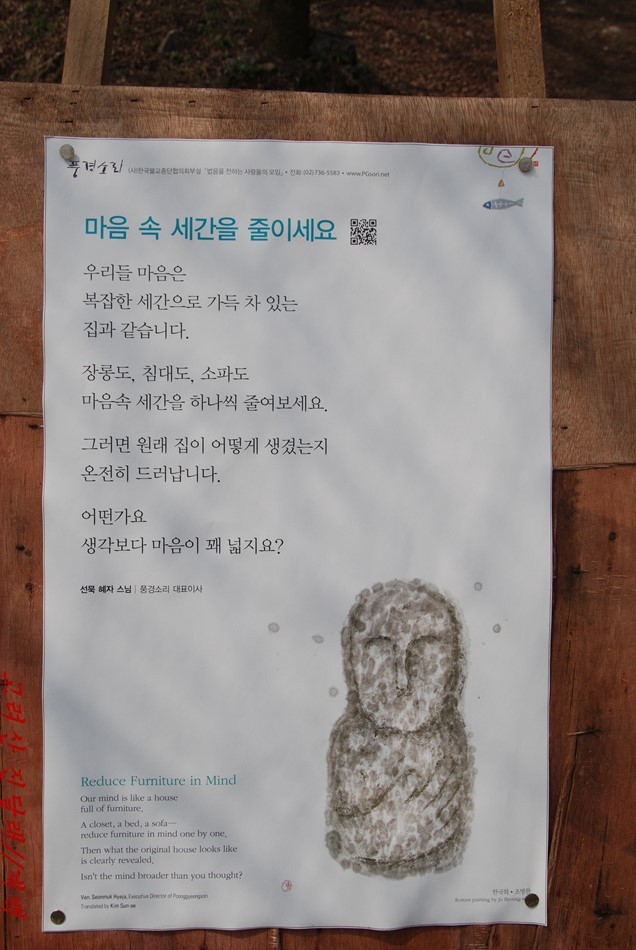 풍경소리 (사)한국불교종단협의회부설 「법음을 전하는 사람들의 모임」 • 전화 (02)736-5583 • www.PGsori.net
마음 속 세간을 줄이세요
우리들 마음은
복잡한 세간으로 가득 차 있는
집과 같습니다.
장롱도, 침대도, 소파도
마음속 세간을 하나씩 줄여보세요.
그러면 원래 집이 어떻게 생겼는지
온전히 드러납니다.
어떤가요
생각보다 마음이 꽤 넓지요?
선묵 혜자 스님 | 풍경소리 대표이사
Reduce Furniture in Mind
Our mind is like a house
full of furniture.
A closet, a bed, a sofa—
reduce furniture in mind one by one.
Then what the original house looks like
is clearly revealed.
Isn't the mind broader than you thought?
Ven. Seonmuk Hyeja, Executive Director of Poonggyeongsori
Translated by Kim Sun-ae
한국화 • 조병완
Korean painting by Jo Byeong